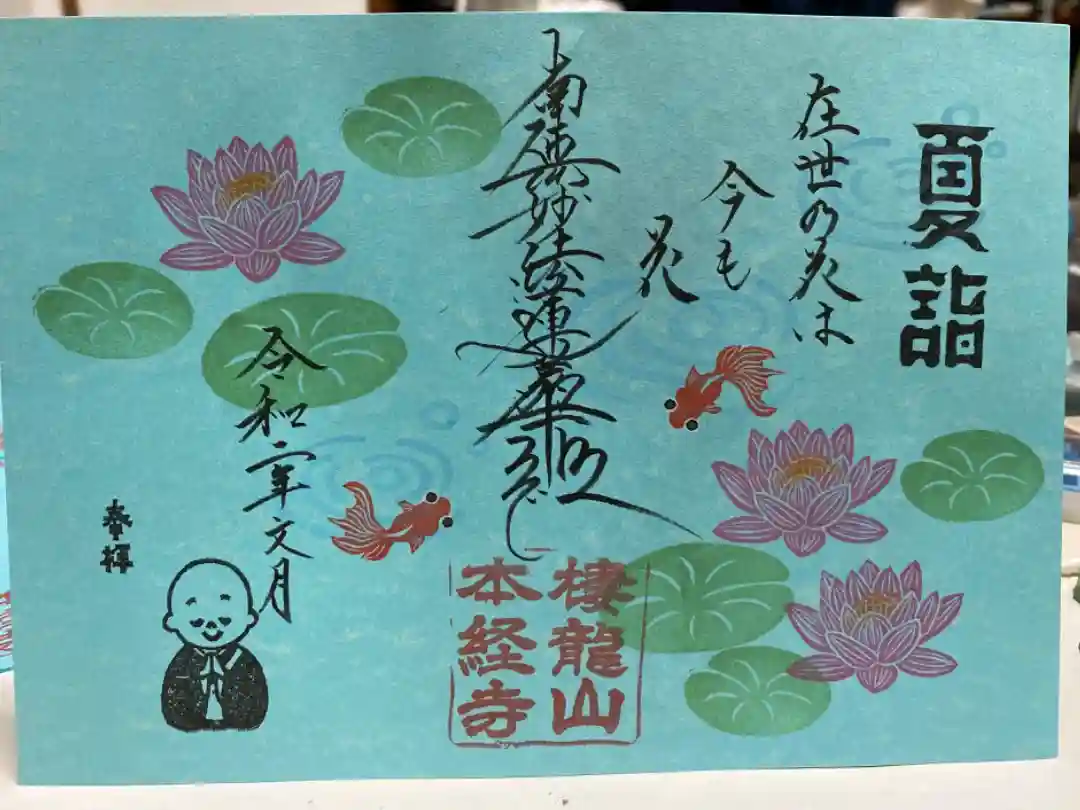 夏詣
在世の花は
今も
花
南無妙法蓮華経
棲龍山
本経寺
令和二年文月
奉拝